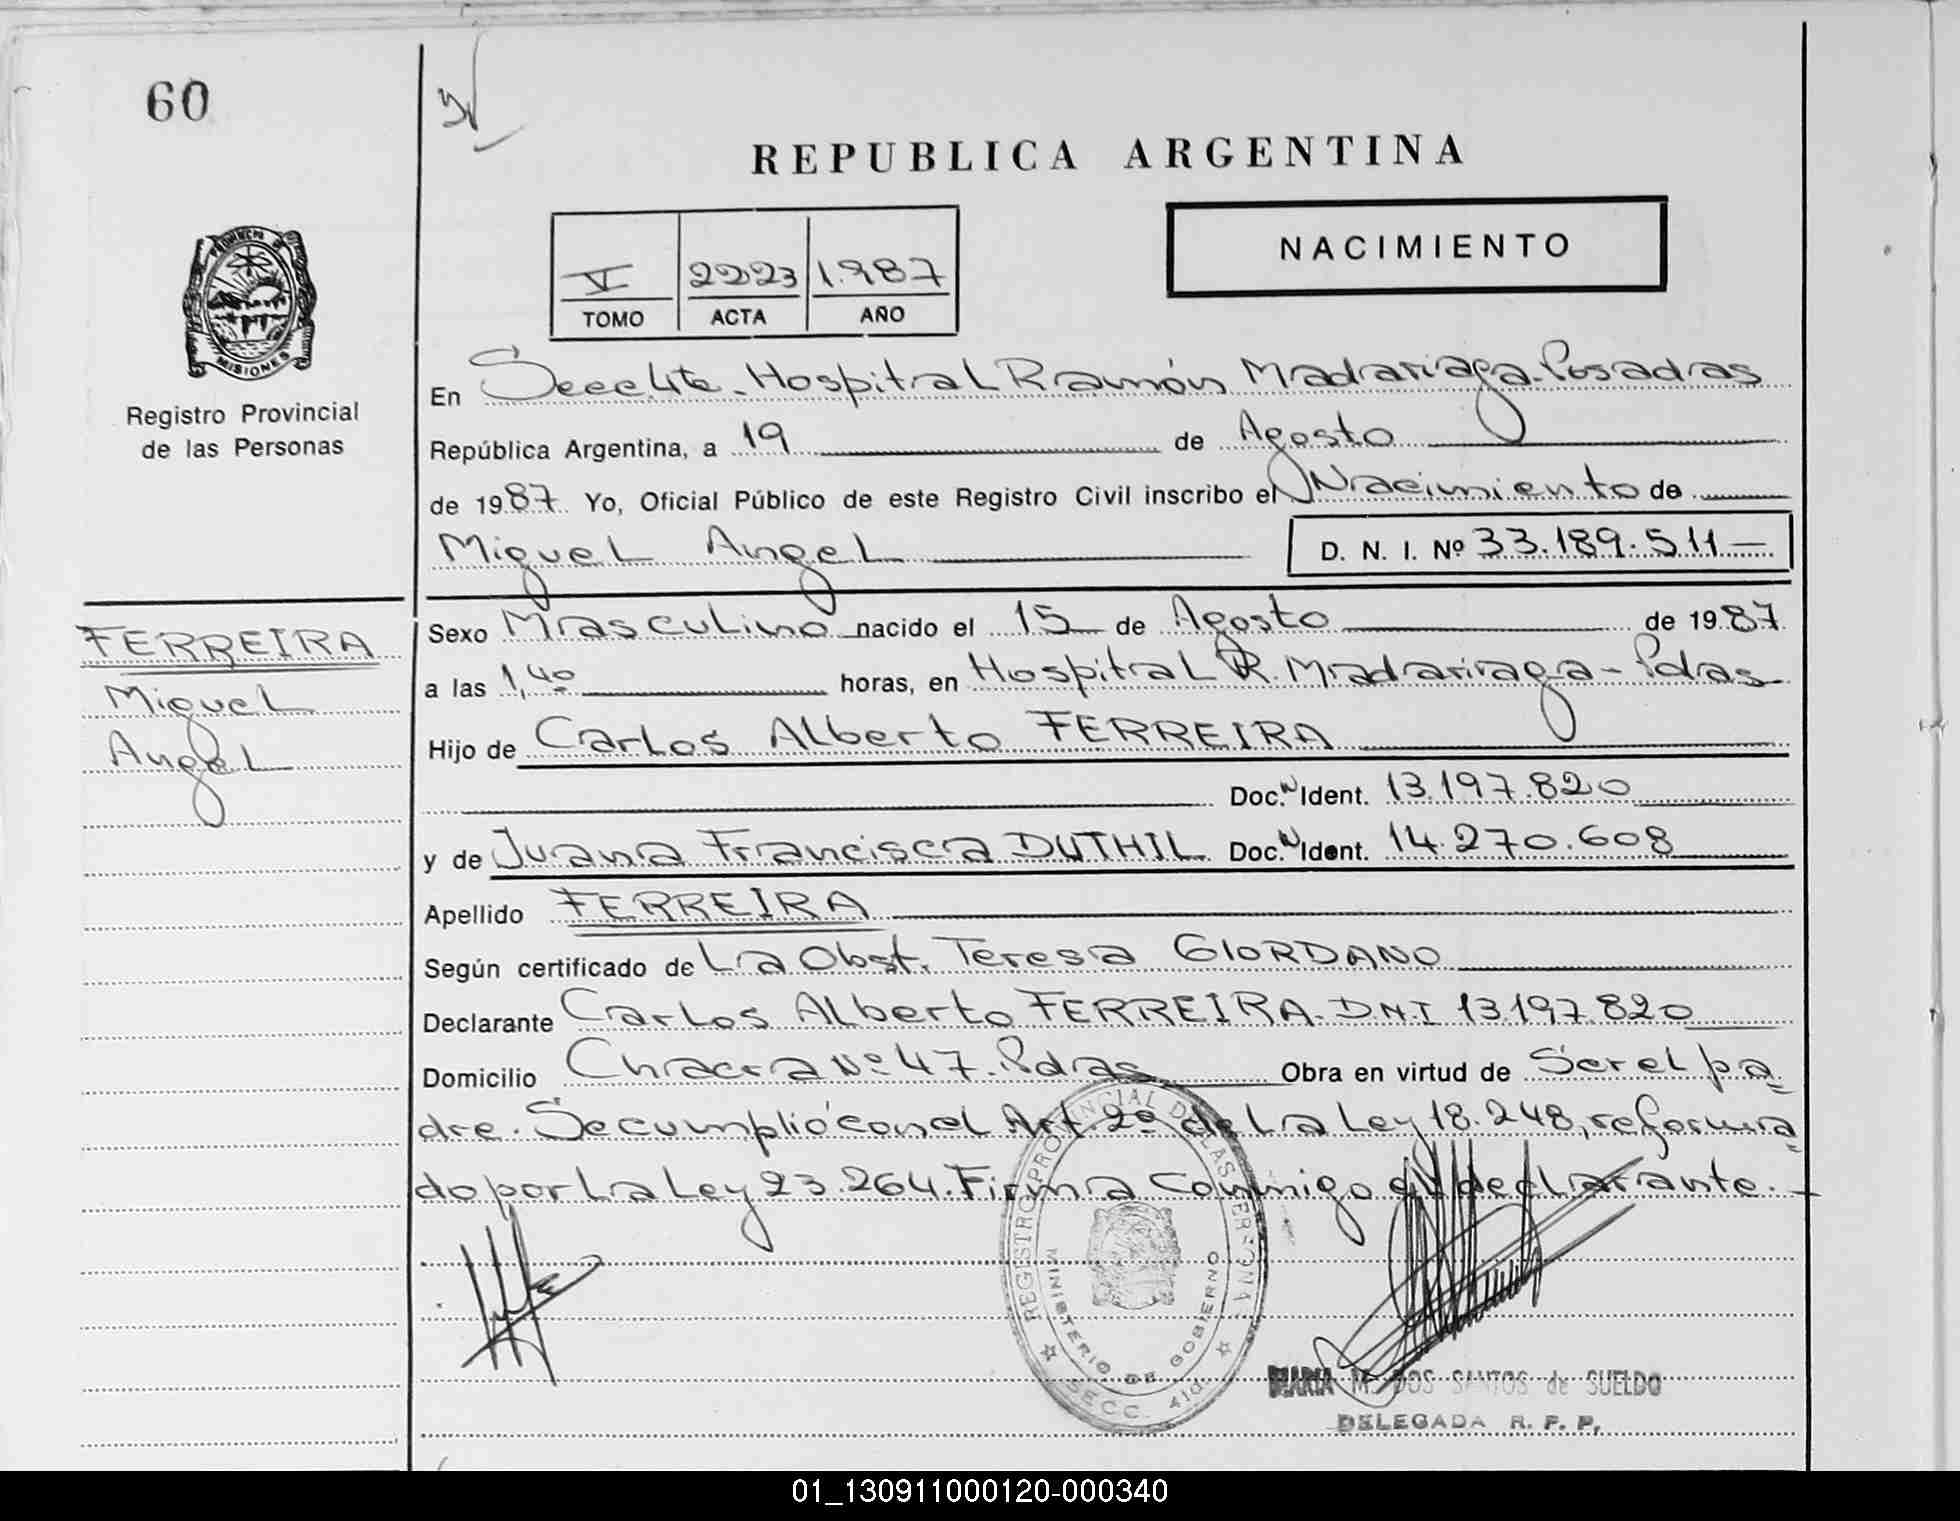 60
REPUBLICA ARGENTINA
V 2223 1.987
TOMO ACTA AÑO
NACIMIENTO
PROVINCIA DE
MISIONES
Registro Provincial
de las Personas
En Secc. 4ta. Hospital Ramón Madariaga-Posadas
República Argentina, a 19 de Agosto
de 1987 Yo, Oficial Público de este Registro Civil inscribo el Nacimiento de
Miguel Angel D. N. I. Nº 33.189.511—
FERREIRA
Miguel
Angel
Sexo Masculino nacido el 15 de Agosto de 1987
a las 1,40 horas, en Hospital R. Madariaga-Pdas
Hijo de Carlos Alberto FERREIRA
Doc. N Ident. 13.197.820
y de Juana Francisca DUTHIL Doc. N Ident. 14.270.608
Apellido FERREIRA
Según certificado de La Obst. Teresa GIORDANO
Declarante Carlos Alberto FERREIRA. D.N.I 13.197.820
Domicilio Chacra Nº 47. Pdas Obra en virtud de Ser el pa=
dre. Se cumplió con el Art. 2º de La Ley 18.248, reforma=
do por La Ley 23.264. Firma conmigo el declarante.-
REGISTRO PROVINCIAL DE LAS PERSONAS
MINISTERIO DE GOBIERNO
SECC. 4ta
MARIA M. DOS SANTOS de SUELDO
DELEGADA R. P. P.
01_130911000120-000340